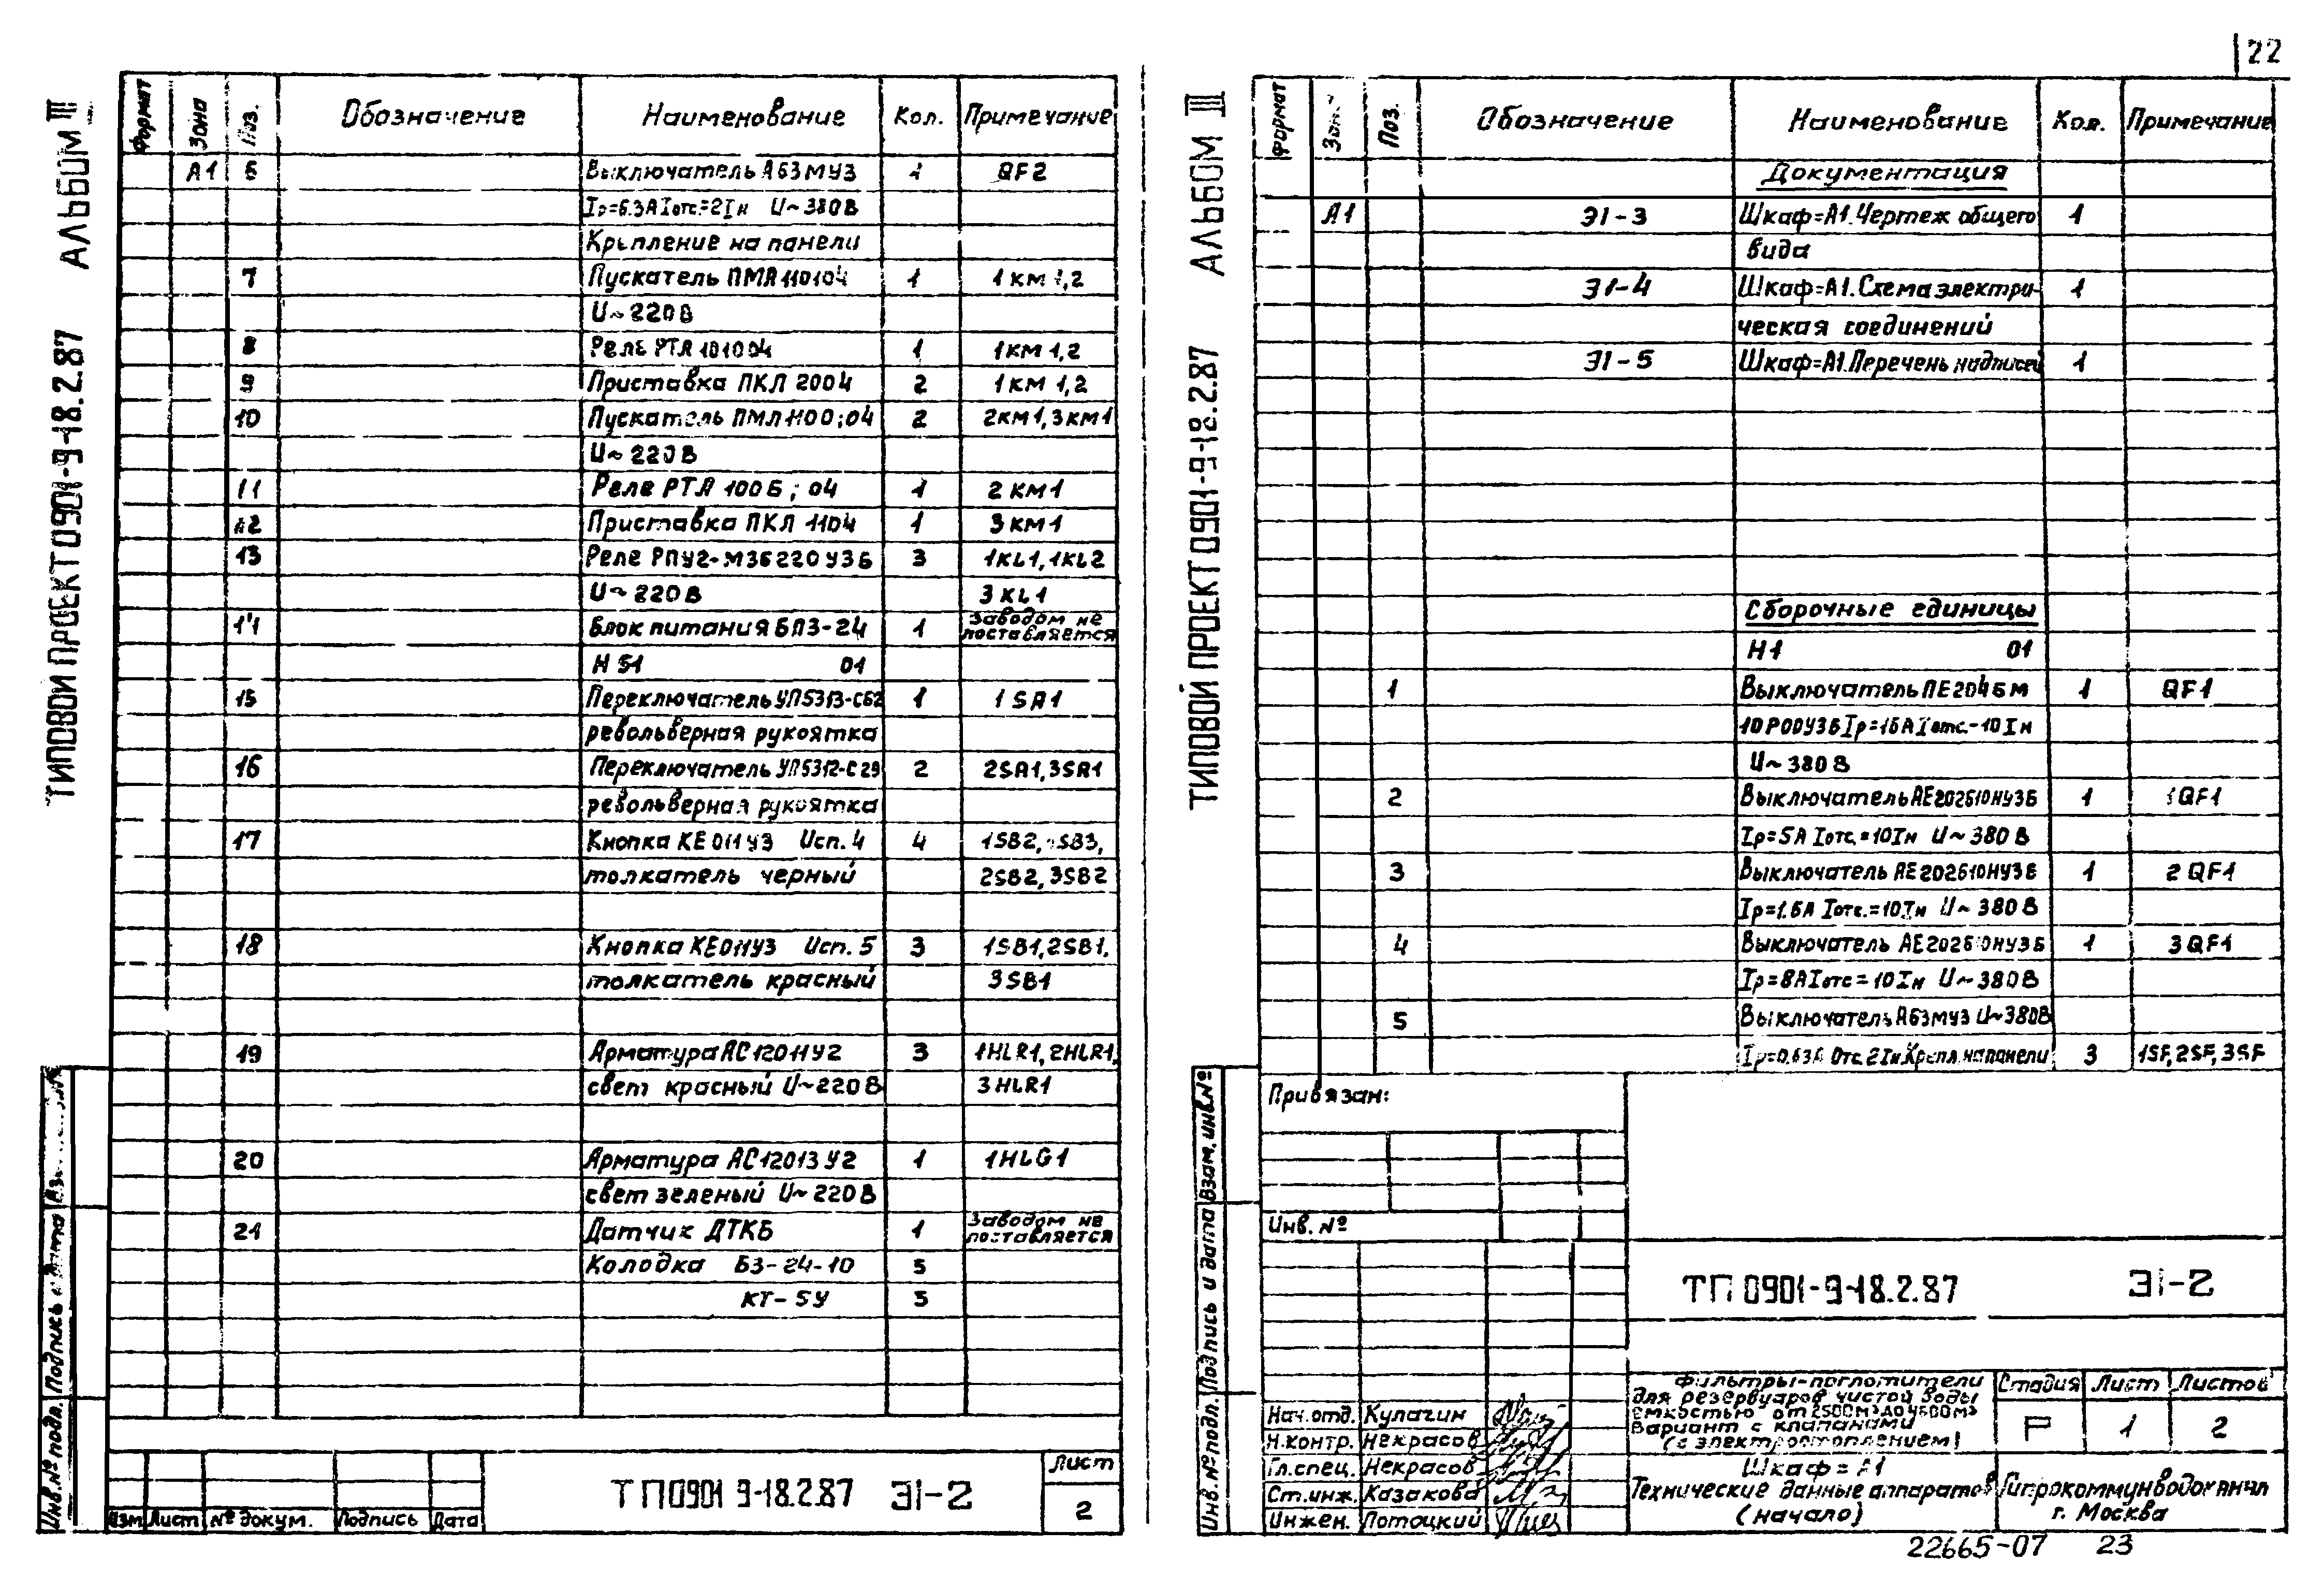 22
АЛЬБОМ III
ТИПОВОЙ ПРОЕКТ 0901-9-18.2.87
Формат Зона Поз. Обозначение Наименование Кол. Примечание
А1 6 Выключатель А63МУ3 1 QF2
Iр=6.3А Iотс.=2Iн U~380В
Крепление на панели
7 Пускатель ПМЛ110104 1 1КМ1,2
U~220В
8 Реле РТЛ101004 1 1КМ1,2
9 Приставка ПКЛ 2004 2 1КМ 1,2
10 Пускатель ПМЛ1100;04 2 2КМ1,3КМ1
U~220В
11 Реле РТЛ 1006; 04 1 2КМ1
12 Приставка ПКЛ 1104 1 3КМ1
13 Реле РПУ2-М36220У3Б 3 1KL1,1KL2
U~220В 3KL1
14 Блок питания БП3-24 1 Заводом не
поставляется
Н51 01
15 Переключатель УП5313-С62 1 1SA1
револьверная рукоятка
16 Переключатель УП5312-С29 2 2SA1,3SA1
револьверная рукоятка
17 Кнопка КЕ011У3 Исп. 4 4 1SB2,1SB3,
толкатель черный 2SB2,3SB2
18 Кнопка КЕ011У3 Исп. 5 3 1SB1,2SB1,
толкатель красный 3SB1
19 Арматура АС12011У2 3 1HLR1,2HLR1,
свет красный U~220В 3HLR1
20 Арматура АС12013У2 1 1HLG1
свет зеленый U~220В
21 Датчик ДТКБ 1 Заводом не
поставляется
Колодка Б3-24-10 5
КТ-5У 5
Инв.№ подл. Подпись и дата
Изм Лист № докум. Подпись Дата
ТП 0901 9-18.2.87 Э1-2
Лист
2
АЛЬБОМ III
ТИПОВОЙ ПРОЕКТ 0901-9-18.2.87
Формат Зона Поз. Обозначение Наименование Кол. Примечание
Документация
А1 Э1-3 Шкаф=А1.Чертеж общего 1
вида
Э1-4 Шкаф=А1.Схема электри- 1
ческая соединений
Э1-5 Шкаф=А1.Перечень надписей 1
Сборочные единицы
Н1 01
1 Выключатель АЕ2046М 1 QF1
10Р00У3Б Iр=16А Iотс.-10Iн
U~380В
2 Выключатель АЕ202610НУ3Б 1 1QF1
Iр=5А Iотс.=10Iн U~380В
3 Выключатель АЕ202610НУ3Б 1 2QF1
Iр=1.6А Iотс.=10Iн U~380В
4 Выключатель АЕ202610НУ3Б 1 3QF1
Iр=8А Iотс=10Iн U~380В
5 Выключатель А63МУ3 U~380В
Iр=0.63А Отс.2Iн.Крепл.на панели 3 1SF,2SF,3SF
Привязан:
Инв. №
Инв.№ подл. Подпись и дата Взам.инв.№
ТП 0901-9-18.2.87 Э1-2
Фильтры-поглотители
для резервуаров чистой воды
емкостью от 2500м³ до 4600м³
Вариант с клапанами
(с электроотоплением)
Стадия Лист Листов
Р 1 2
Нач.отд. Кулагин
Н.контр. Некрасов
Гл.спец. Некрасов
Ст.инж. Казакова
Инжен. Потоцкий
Шкаф=А1
Технические данные аппаратов
(начало)
Гипрокоммунводоканал
г. Москва
22665-07 23